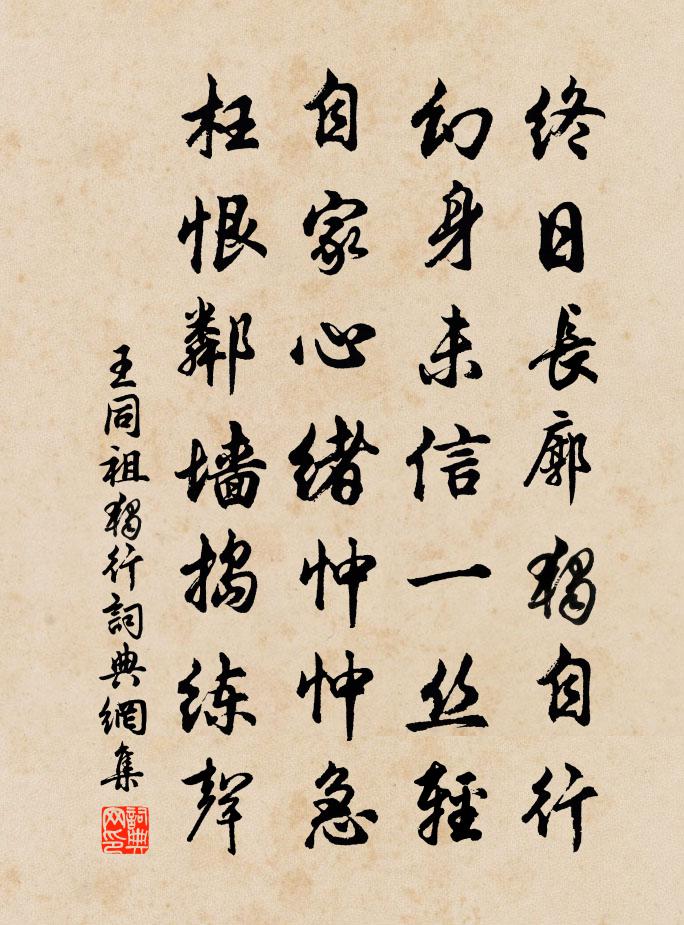 終日長廓獨自行
幻身未信一丝輕
自家心緒忡忡急
枉恨鄰墙搗练聲
王同祖獨行詞典網集
詞典网印